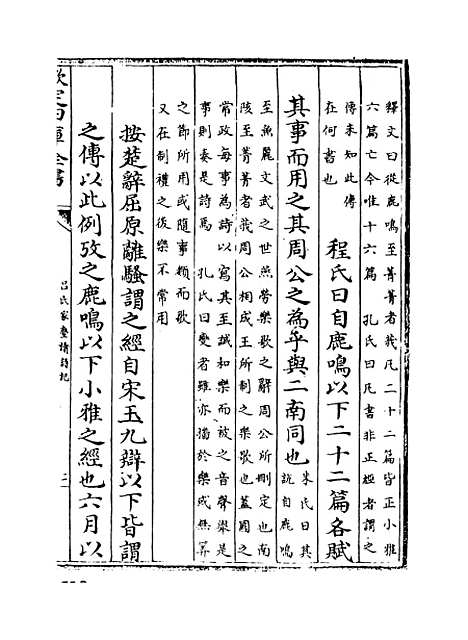 釋文曰從鹿鳴至菁菁者莪凡二十二篇皆正小雅
六篇亡今唯十六篇　孔氏曰凡書非正經者謂之
傳未知此傳
在何書也
程氏曰自鹿鳴以下二十二篇各賦
其事而用之其周公之為乎與二南同也
朱氏曰其
說自鹿鳴
至魚麗文武之世燕勞樂歌之辭周公所刪定也南
陔至菁菁者莪周公相成王所制之樂歌也蓋國之
常政每事為詩以寫其至誠和樂而被之音聲舉是
事則奏是詩焉　孔氏曰變者雖亦播於樂或無筭
之節所用或隨事類而歌
又在制禮之後樂不常用
按楚辭屈原離騷謂之經自宋玉九辯以下皆謂
之傳以此例攷之鹿鳴以下小雅之經也六月以
欽定四庫全書
呂氏家塾讀詩記